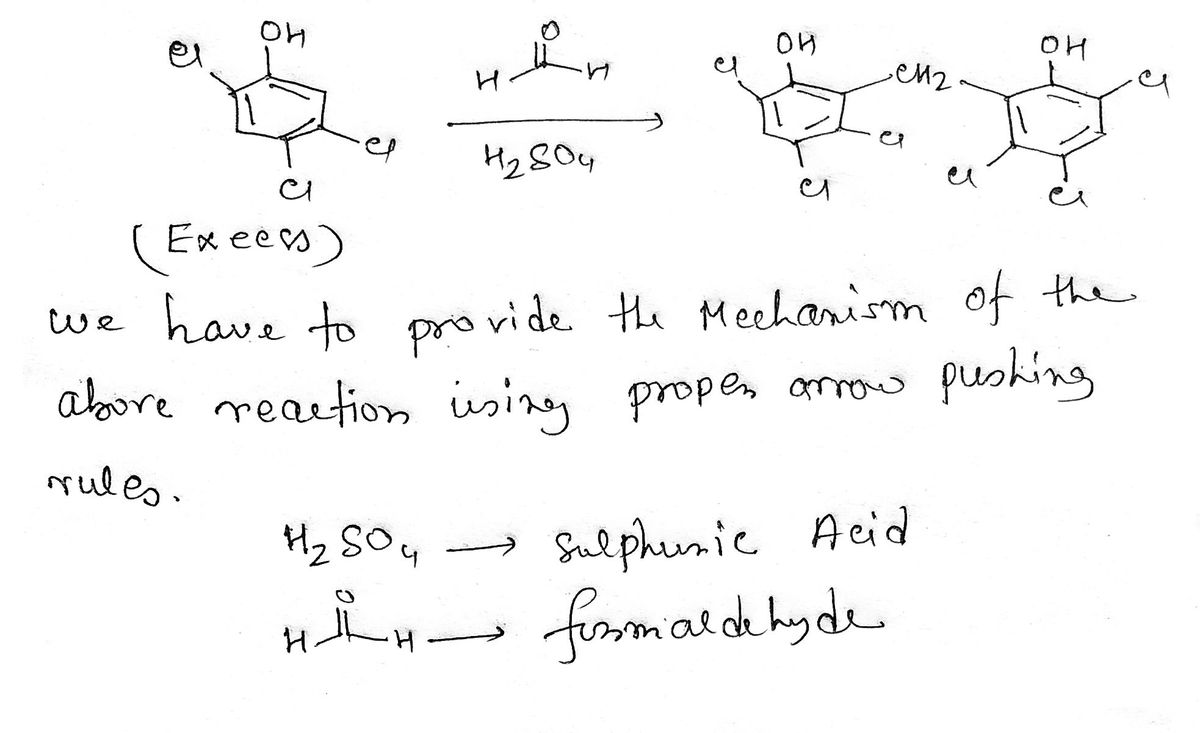 OH
Cl
Cl
Cl
(Excess)
O
H H
H2SO4
OH
Cl
CH2
Cl
Cl
OH
Cl
Cl
Cl
we have to provide the Mechanism of the
above reaction using proper arrow pushing
rules.
H2SO4 → Sulphuric Acid
O
H H → formaldehyde